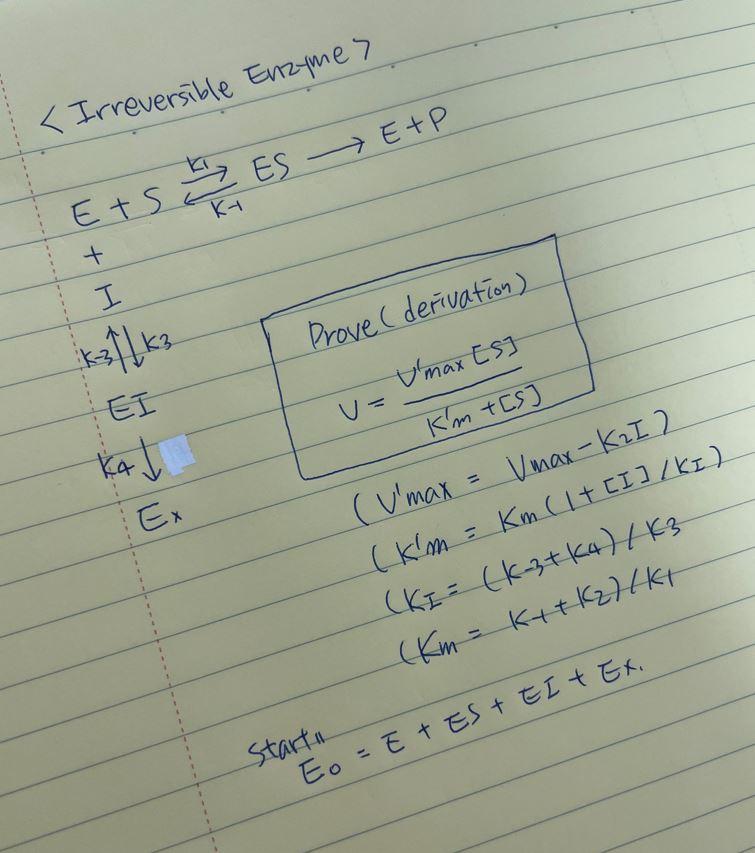 < Irreversible Enzyme >
E + S ⇌ ES → E + P
K1
K-1
+
I
K-3 ↑↓ K3
EI
K4 ↓
Ex
Prove (derivation)
V = V'max [S] / K'm + [S]
(V'max = Vmax - K2I)
(K'm = Km (1 + [I] / KI)
(KI = (K-3 + K4) / K3
(Km = K-1 + K2) / K1
Start"
E0 = E + ES + EI + Ex.